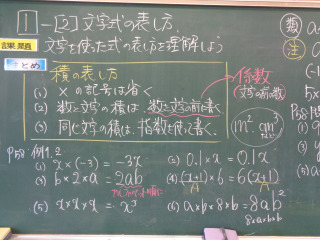 1-[2] 文字式の表し方
課題 文字を使った式の表し方を理解しよう
まとめ
積の表し方
(1) ×の記号は省く
(2) 数と文字の積は、数を文字の前に書く
(3) 同じ文字の積は、指数を使って書く。
係数
(文字の前の数)
m² cm³
P58 例1, 2
(1) x×(-3) = -3x
(2) 0.1×x = 0.1x
(3) b×2×a = 2ab
アルファベット順に
(4) (x+1)×6 = 6(x+1)
A A
(5) x×x×x = x³
(6) a×b×8×b = 8ab²
8×a×b×b
数
注
P58
(1)
(3)
(5)